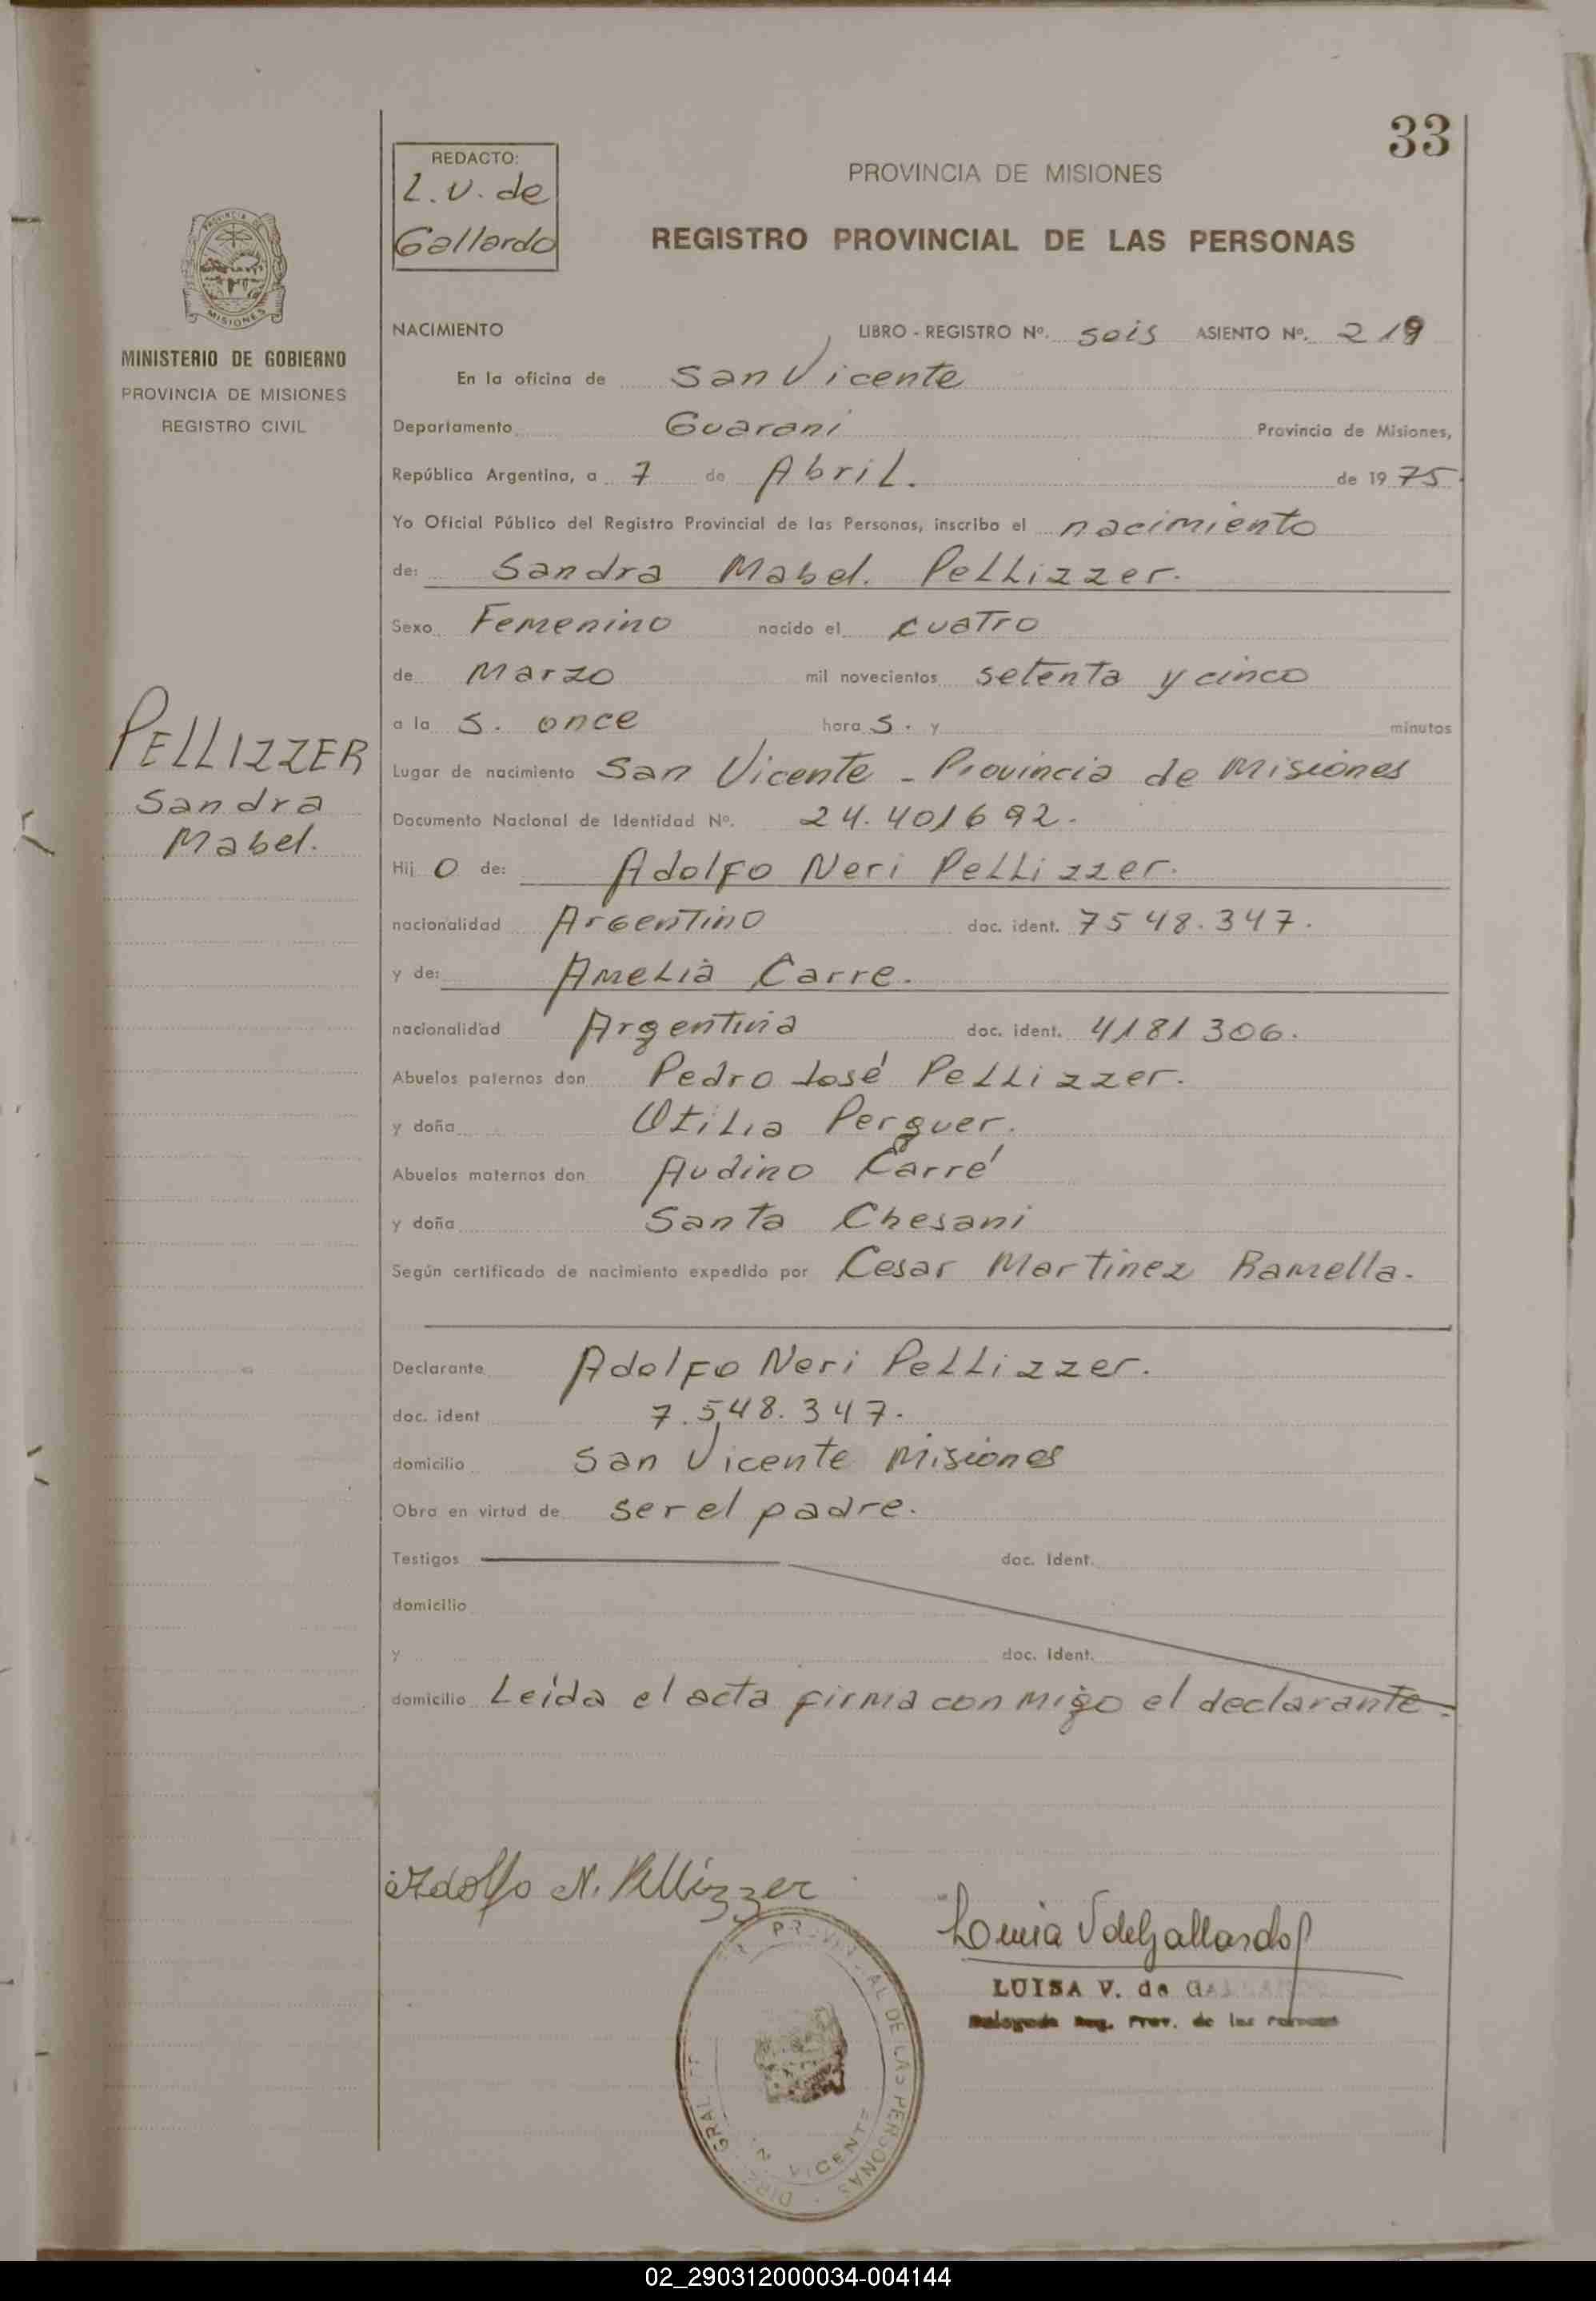 33
REDACTO:
L. V. de
Gallardo
PROVINCIA DE MISIONES
REGISTRO PROVINCIAL DE LAS PERSONAS
PROVINCIA DE
MISIONES
MINISTERIO DE GOBIERNO
PROVINCIA DE MISIONES
REGISTRO CIVIL
NACIMIENTO LIBRO - REGISTRO Nº. seis ASIENTO Nº. 219
En la oficina de San Vicente
Departamento Guarani Provincia de Misiones,
República Argentina, a 7 de Abril. de 1975
Yo Oficial Público del Registro Provincial de las Personas, inscribo el nacimiento
de: Sandra Mabel. Pellizzer.
Sexo Femenino nacido el cuatro
de Marzo mil novecientos setenta y cinco
a la s. once hora s. y minutos
PELLIZZER
Sandra
Mabel.
Lugar de nacimiento San Vicente - Provincia de Misiones
Documento Nacional de Identidad Nº. 24.401692.
Hij o de: Adolfo Neri Pellizzer.
nacionalidad Argentino doc. ident. 7548.347.
y de: Amelia Carre.
nacionalidad Argentina doc. ident. 4181306.
Abuelos paternos don Pedro José Pellizzer.
y doña Otilia Perguer.
Abuelos maternos don Audino Carré
y doña Santa Chesani
Según certificado de nacimiento expedido por Cesar Martinez Ramella.
Declarante Adolfo Neri Pellizzer.
doc. ident 7.548.347.
domicilio San Vicente Misiones
Obra en virtud de ser el padre.
Testigos doc. Ident.
domicilio
y doc. Ident.
domicilio Leída el acta firma con migo el declarante.
Adolfo N. Pellizzer
Luisa V de Gallardo
LUISA V. de GALLARDO
Delegada Reg. Prov. de las Personas
PROVINCIAL DE LAS PERSONAS
VICENTE
02_290312000034-004144